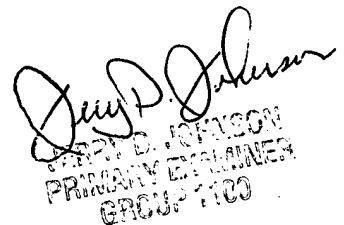 Jerry D. Johnson
JERRY D. JOHNSON
PRIMARY EXAMINER
GROUP 1100